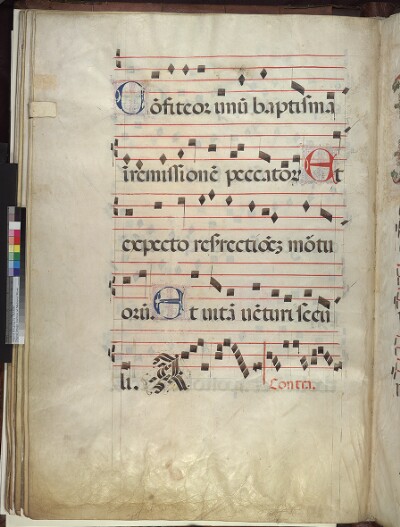 Cōfiteor unū baptisma
ī remissionē peccatoꝝ Et
expecto resrectiōeꝫ mōtu
oruꝫ. Et uitā uēturi secu
li. A
Contra.